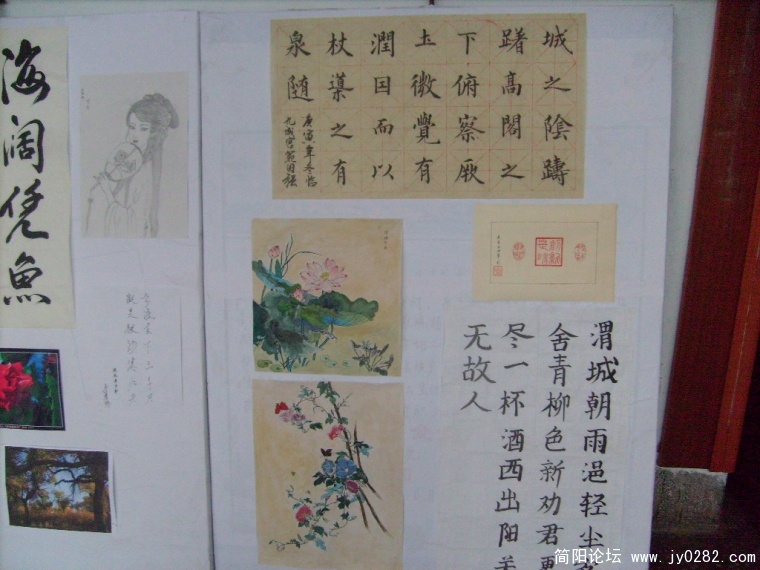 海阔凭魚
城之陰躊
躇高閣之
下俯察厥
土微覺有
潤因而以
杖導之有
泉随
庚寅年冬临
九成宫
渭城朝雨浥轻尘客
舍青柳色新劝君更
尽一杯酒西出阳关
无故人
简阳论坛 www.jy0282.com